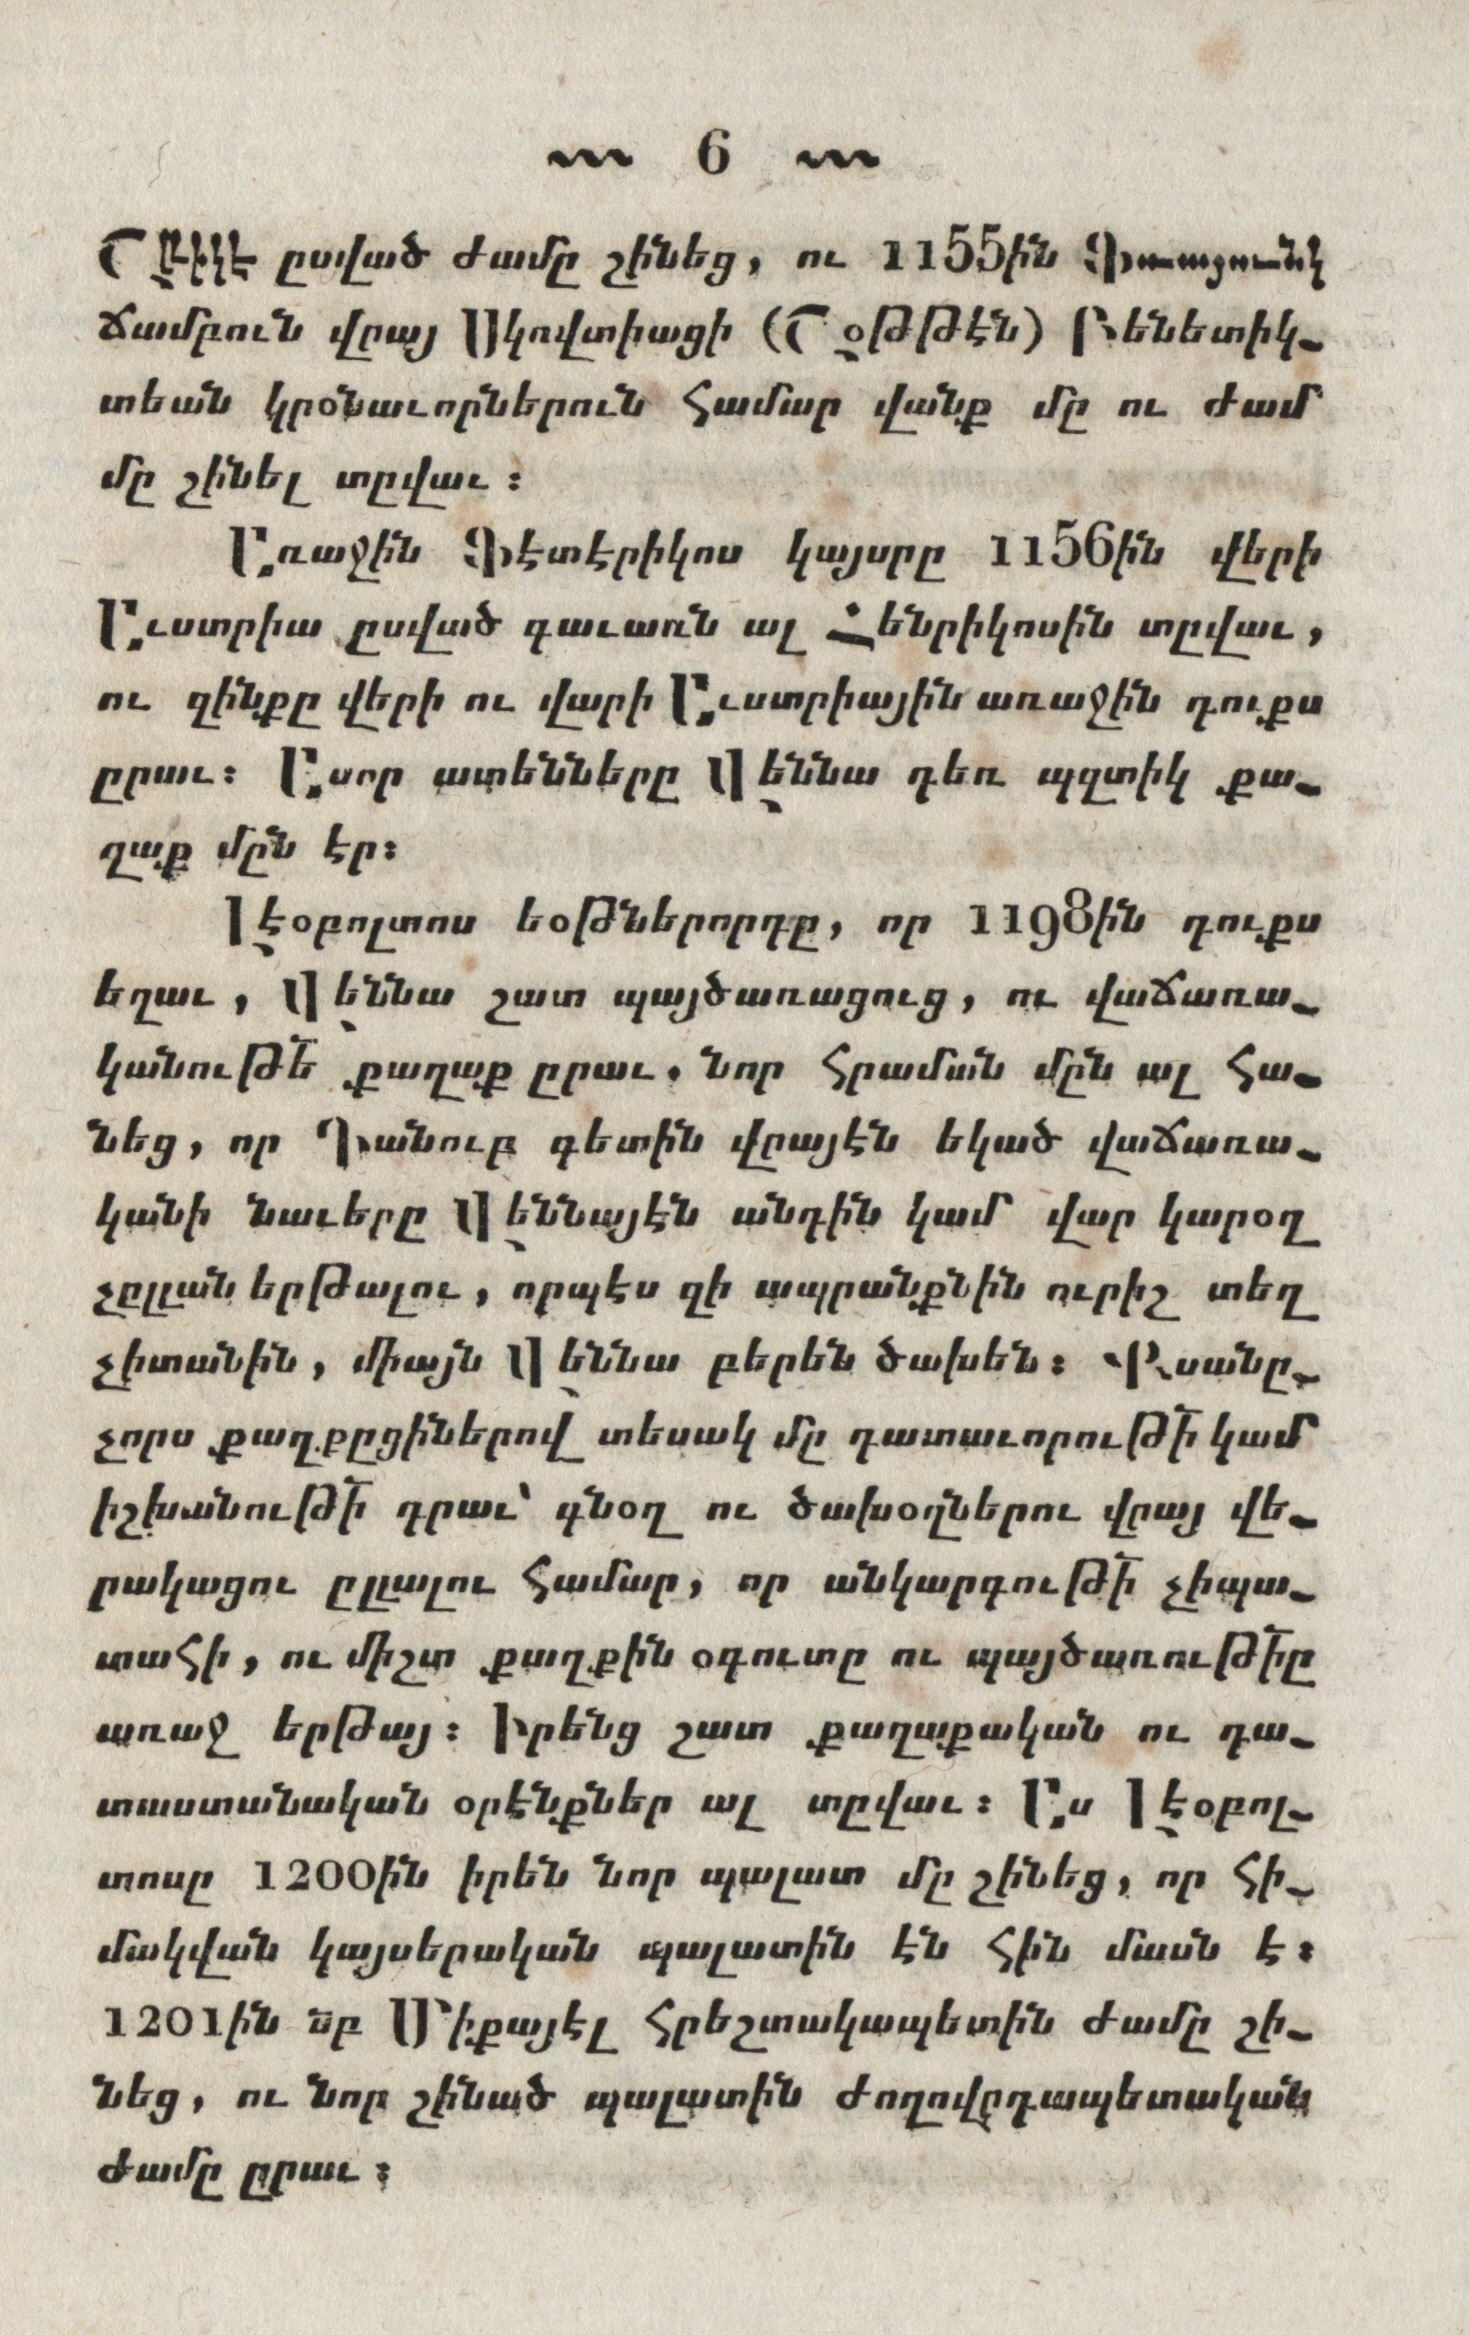 6
ըսված ժամը շինեց, ու 1155ին
ճամբուն վրայ Սկովտիացի (Շօթթէն) Բենետիկ֊
տեան կրօնաւորներուն համար վանք մը ու ժամ
մը շինել տըվաւ։
Առաջին Ֆէտէրիկոս կայսրը 1156ին վերի
Աւստրիա ըսված գաւառն ալ Հենրիկոսին տըվաւ,
ու զինքը վերի ու վարի Աւստրիային առաջին դուքս
ըրաւ։ Ասոր ատենները Վեննա դեռ պզտիկ քա֊
ղաք մըն էր։
Լէօբոլտոս եօթներորդը, որ 1198ին դուքս
եղաւ, Վեննա շատ պայծառացուց, ու վաճառա֊
կանութե՟ քաղաք ըրաւ. նոր հրաման մըն ալ հա֊
նեց, որ Դանուբ գետին վրայէն եկած վաճառա֊
կանի նաւերը Վեննայէն անդին կամ վար կարօղ
չըլլան երթալու, որպէս զի ապրանքնին ուրիշ տեղ
չիտանին, միայն Վեննա բերեն ծախեն։ Քսանը֊
չորս քաղքըցիներով տեսակ մը դատաւորութի՟ կամ
իշխանութի՟ դրաւ՝ գնօղ ու ծախօղներու վրայ վե֊
րակացու ըլլալու համար, որ անկարգութի՟ չիպա֊
տահի, ու միշտ քաղքին օգուտը ու պայծառութի՟ը
առաջ երթայ։ Իրենց շատ քաղաքական ու դա֊
տաստանական օրէնքներ ալ տըվաւ։ Աս Լէօբոլ֊
տոսը 1200ին իրեն նոր պալատ մը շինեց, որ հի֊
մակվան կայսերական պալատին էն հին մասն է։
1201ին սբ՟ Միքայէլ հրեշտակապետին ժամը շի֊
նեց, ու նոր շինած պալատին ժողովըդապետական
ժամը ըրաւ։